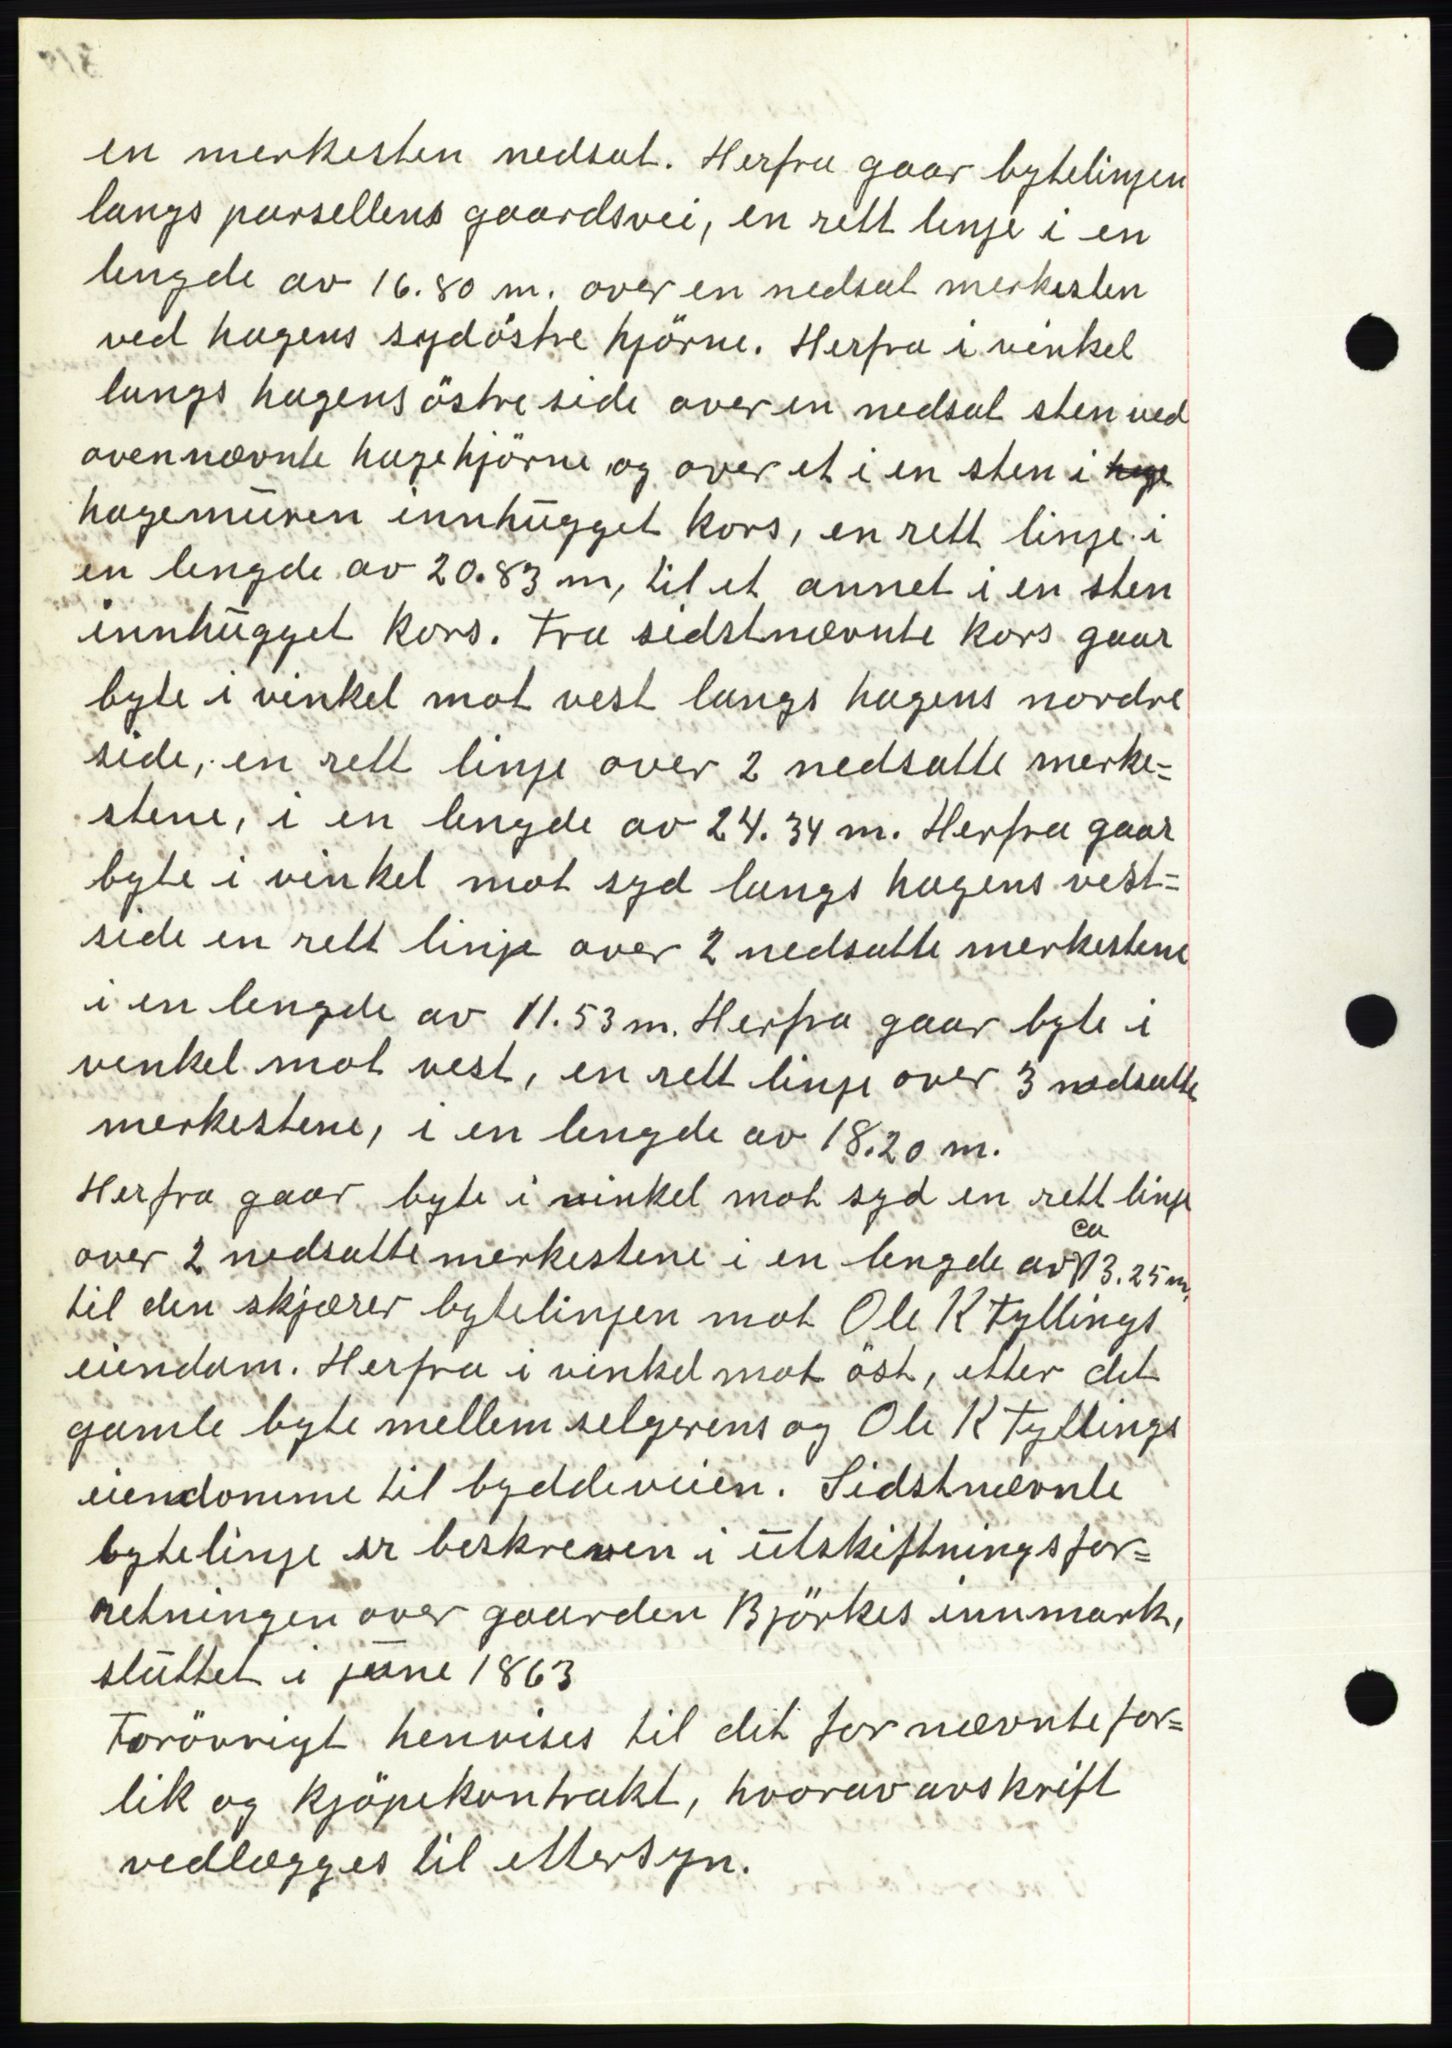 en merkesten nedsat. Herfra gaar bytelinjen
langs parsellens gaardsvei, en rett linje i en
lengde av 16.80 m. over en nedsat merkesten
ved hagens sydöstre hjörne. Herfra i vinkel
langs hagens östre side over en nedsat sten ved
ovennævnte hagehjörne og over et i en sten i
hagemuren innhugget kors, en rett linje i
en lengde av 20.83 m, til et annet i en sten
innhugget kors. Fra sidstnævnte kors gaar
byte i vinkel mot vest langs hagens nordre
side, en rett linje over 2 nedsatte merke=
stene, i en lengde av 24.34 m. Herfra gaar
byte i vinkel mot syd langs hagens vest=
side en rett linje over 2 nedsatte merkestene
i en lengde av 11.53 m. Herfra gaar byte i
vinkel mot vest, en rett linje over 3 nedsatte
merkestene, i en lengde av 18.20 m.
Herfra gaar byte i vinkel mot syd en rett linje
over 2 nedsatte merkestene i en lengde av ca 13.25 m,
til den skjærer bytelinjen mot Ole K Fyllings
eiendom. Herfra i vinkel mot öst, etter det
gamle byte mellem selgerens og Ole K Fyllings
eiendomme til byddeveien. Sidstnævnte
bytelinje er beskreven i utskiftningsfor=
retningen over gaarden Björkes innmark,
sluttet i june 1863
Forövrigt henvises til det fornævnte for=
lik og kjöpekontrakt, hvorav avskrift
vedlægges til ettersyn.